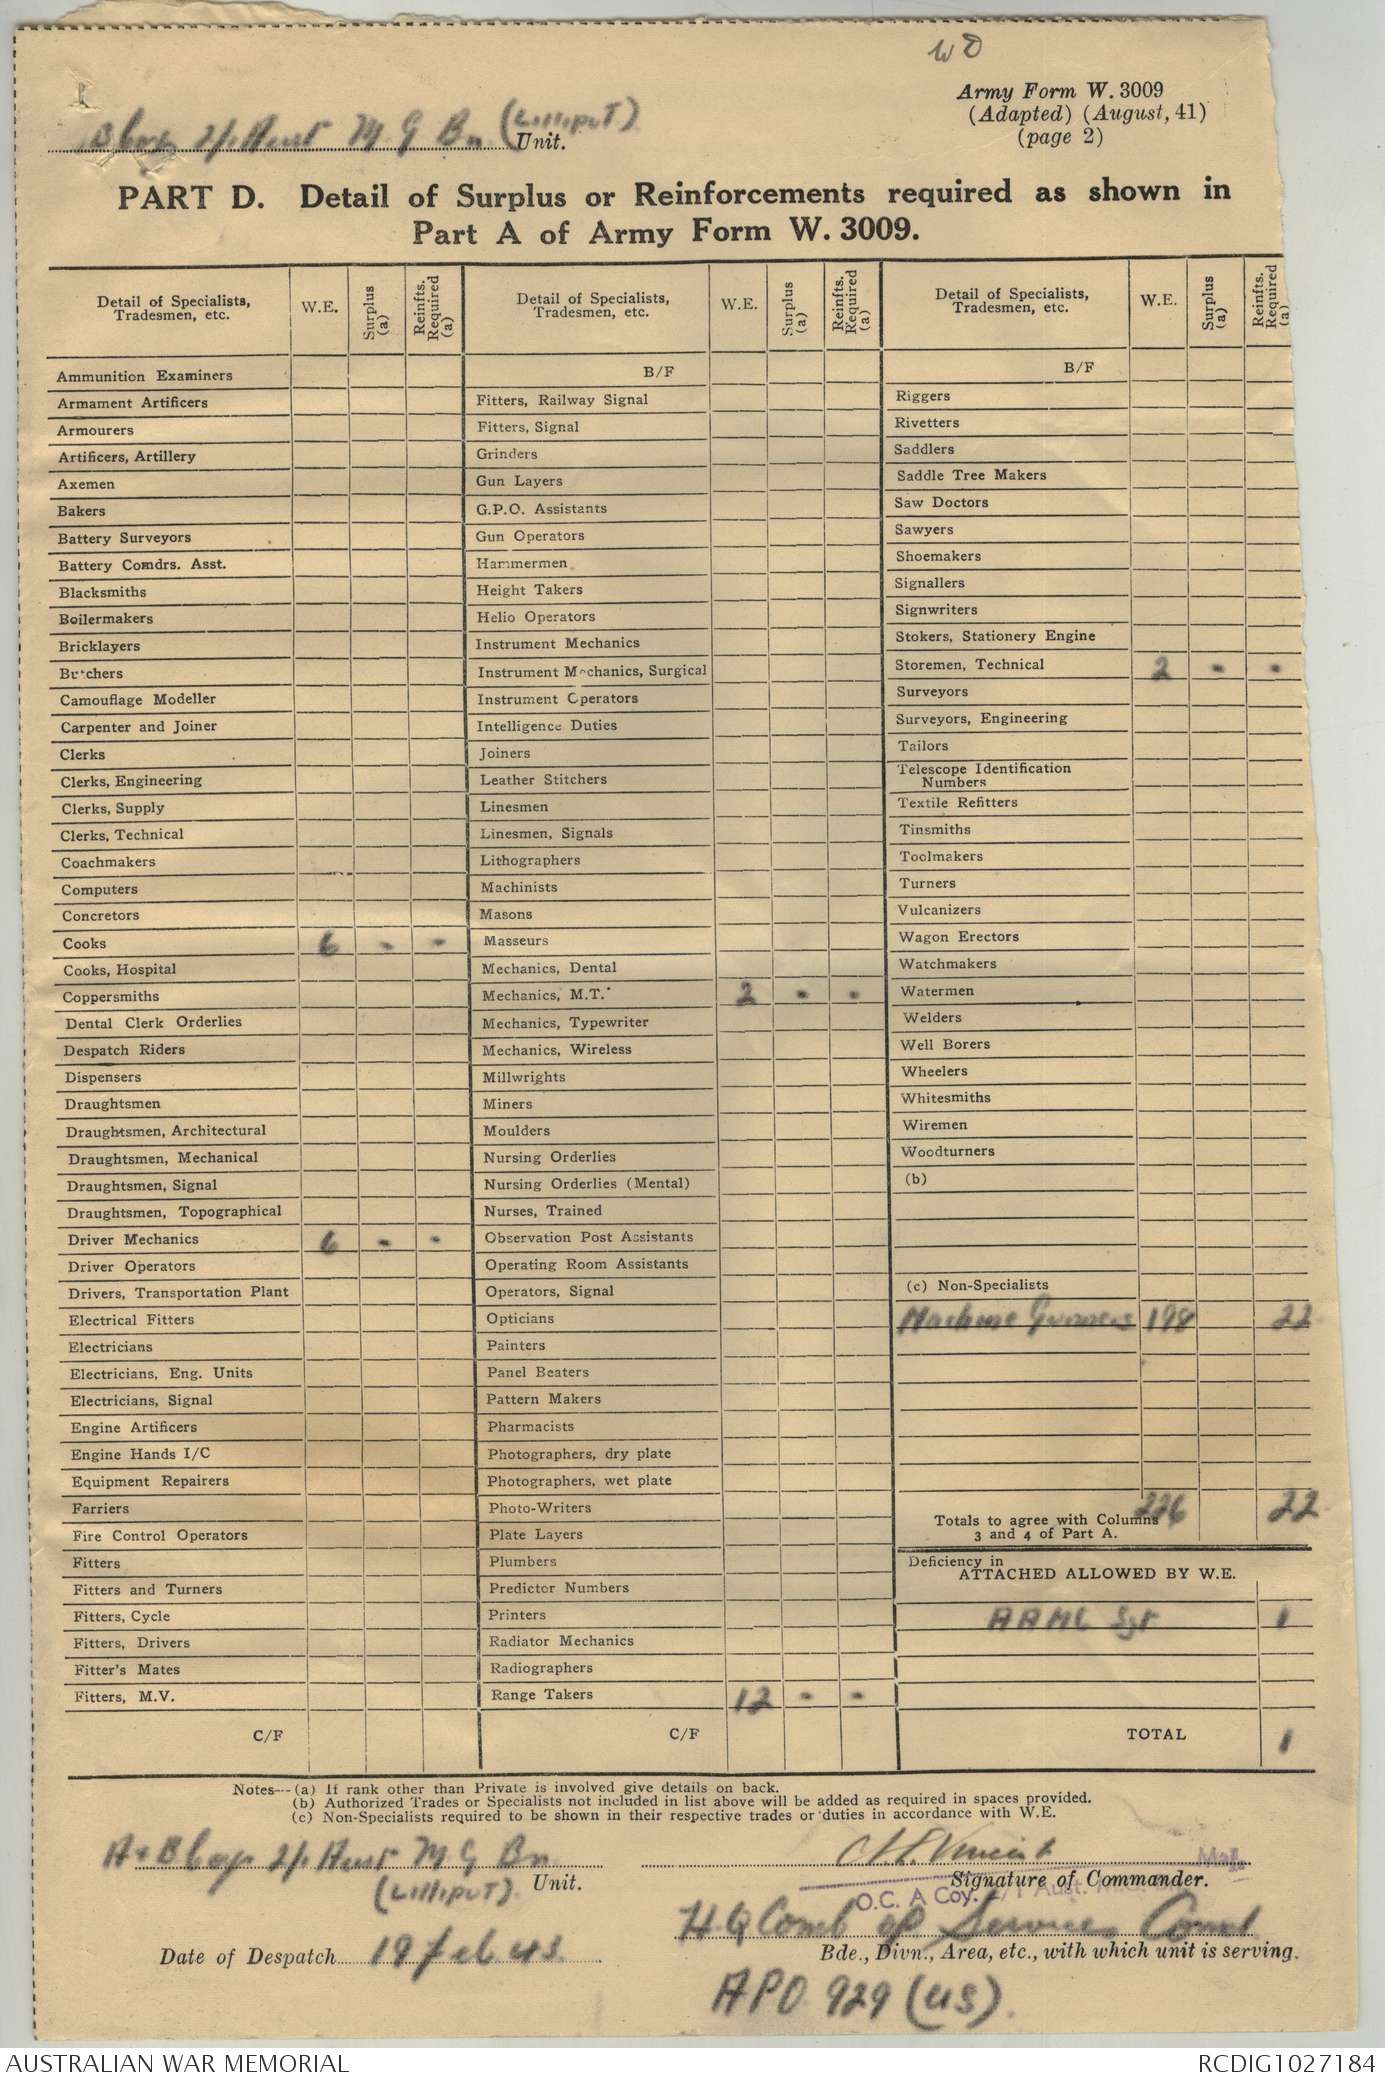 WD
Army Form W. 3009
(Adapted) (August, 41)
(page 2)
B Coy 2/1 Aust M G Bn (LILLIPUT) Unit.
PART D. Detail of Surplus or Reinforcements required as shown in
Part A of Army Form W. 3009.
Detail of Specialists, Tradesmen, etc. W.E. Surplus (a) Reinfts. Required (a)
Ammunition Examiners
Armament Artificers
Armourers
Artificers, Artillery
Axemen
Bakers
Battery Surveyors
Battery Comdrs. Asst.
Blacksmiths
Boilermakers
Bricklayers
Butchers
Camouflage Modeller
Carpenter and Joiner
Clerks
Clerks, Engineering
Clerks, Supply
Clerks, Technical
Coachmakers
Computers
Concretors
Cooks 6 - -
Cooks, Hospital
Coppersmiths
Dental Clerk Orderlies
Despatch Riders
Dispensers
Draughtsmen
Draughtsmen, Architectural
Draughtsmen, Mechanical
Draughtsmen, Signal
Draughtsmen, Topographical
Driver Mechanics 6 - -
Driver Operators
Drivers, Transportation Plant
Electrical Fitters
Electricians
Electricians, Eng. Units
Electricians, Signal
Engine Artificers
Engine Hands I/C
Equipment Repairers
Farriers
Fire Control Operators
Fitters
Fitters and Turners
Fitters, Cycle
Fitters, Drivers
Fitter's Mates
Fitters, M.V.
C/F
Detail of Specialists, Tradesmen, etc. W.E. Surplus (a) Reinfts. Required (a)
B/F
Fitters, Railway Signal
Fitters, Signal
Grinders
Gun Layers
G.P.O. Assistants
Gun Operators
Hammermen
Height Takers
Helio Operators
Instrument Mechanics
Instrument Mechanics, Surgical
Instrument Operators
Intelligence Duties
Joiners
Leather Stitchers
Linesmen
Linesmen, Signals
Lithographers
Machinists
Masons
Masseurs
Mechanics, Dental
Mechanics, M.T. 2 - -
Mechanics, Typewriter
Mechanics, Wireless
Millwrights
Miners
Moulders
Nursing Orderlies
Nursing Orderlies (Mental)
Nurses, Trained
Observation Post Assistants
Operating Room Assistants
Operators, Signal
Opticians
Painters
Panel Beaters
Pattern Makers
Pharmacists
Photographers, dry plate
Photographers, wet plate
Photo-Writers
Plate Layers
Plumbers
Predictor Numbers
Printers
Radiator Mechanics
Radiographers
Range Takers 12 - -
C/F
Detail of Specialists, Tradesmen, etc. W.E. Surplus (a) Reinfts. Required (a)
B/F
Riggers
Rivetters
Saddlers
Saddle Tree Makers
Saw Doctors
Sawyers
Shoemakers
Signallers
Signwriters
Stokers, Stationery Engine
Storemen, Technical 2 - -
Surveyors
Surveyors, Engineering
Tailors
Telescope Identification
Numbers
Textile Refitters
Tinsmiths
Toolmakers
Turners
Vulcanizers
Wagon Erectors
Watchmakers
Watermen
Welders
Well Borers
Wheelers
Whitesmiths
Wiremen
Woodturners
(b)
(c) Non-Specialists
Machine Gunners 198 22
226 22
Totals to agree with Columns
3 and 4 of Part A.
Deficiency in
ATTACHED ALLOWED BY W.E.
AAMC Sgt 1
TOTAL 1
Notes—(a) If rank other than Private is involved give details on back.
(b) Authorized Trades or Specialists not included in list above will be added as required in spaces provided.
(c) Non-Specialists required to be shown in their respective trades or duties in accordance with W.E.
A & B Coys 2/1 Aust M G Bn
(LILLIPUT). Unit.
Maj.
Signature of Commander.
O.C. A Coy. 2/1 Aust. M.G.
H Q Comb op Service Comd
Bde., Divn., Area, etc., with which unit is serving.
Date of Despatch 19 Feb 43.
APO 929 (US).
AUSTRALIAN WAR MEMORIAL RCDIG1027184